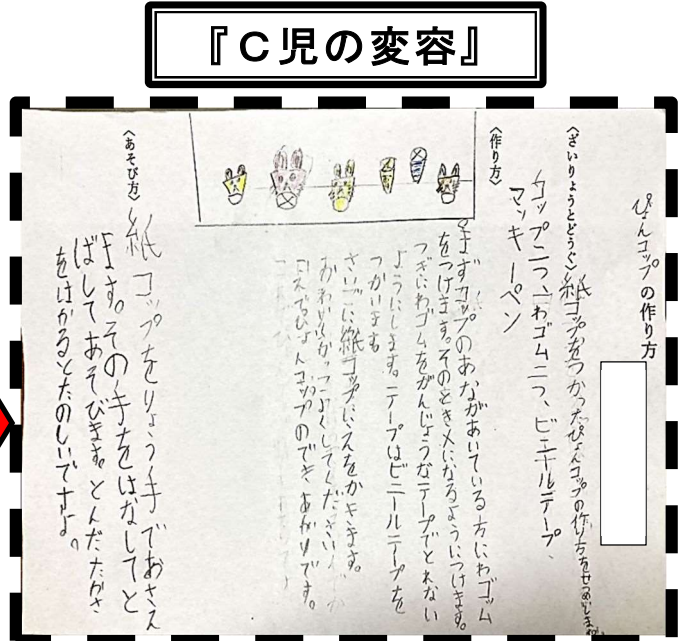 『C児の変容』
ぴょんコップの作り方
〈ざいりょうとどうぐ〉紙コップをつかったぴょんコップの作り方をせつめいします。
コップ二つ、わゴム二つ、ビニールテープ、
マッキーペン
〈作り方〉
まずコップのあながあいている方にわゴム
をつけます。そのとき×になるようにつけます。
つぎにわゴムをがんじょうなテープでとれない
ようにします。テープはビニールテープを
つかいます
さいごに紙コップにえをかきます。
かわいくかっこよくしてください
これでぴょんコップのできあがりです。
〈あそび方〉紙コップをりょう手でおさえ
ます。その手をはなしてと
ばしてあそびます。とんだたかさ
をはかるとたのしいですよ。